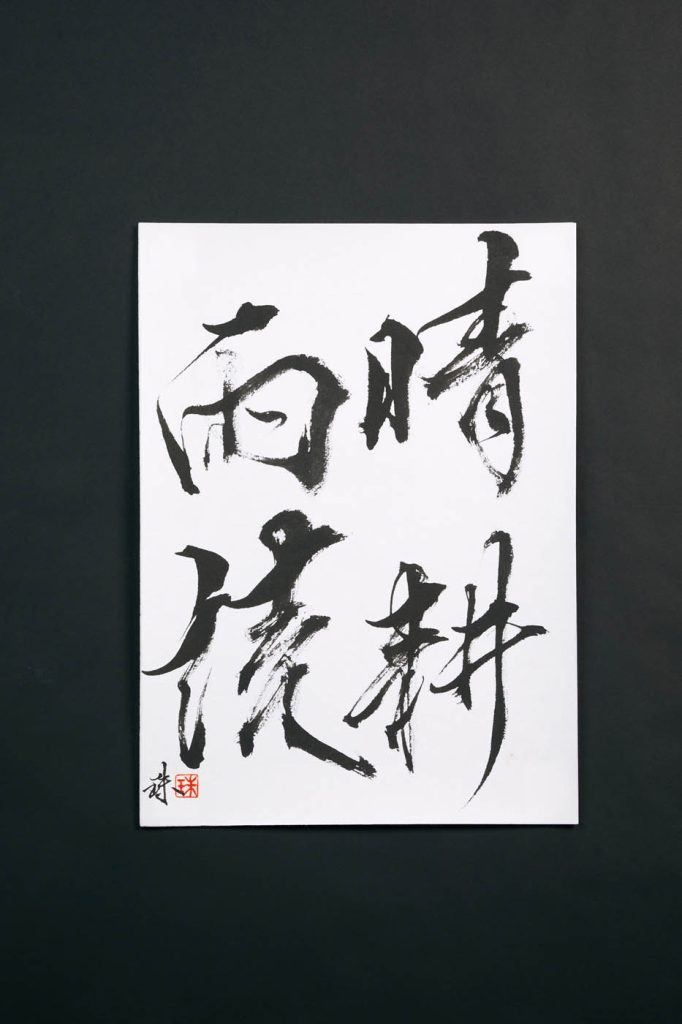 晴耕
雨読
珠
珠